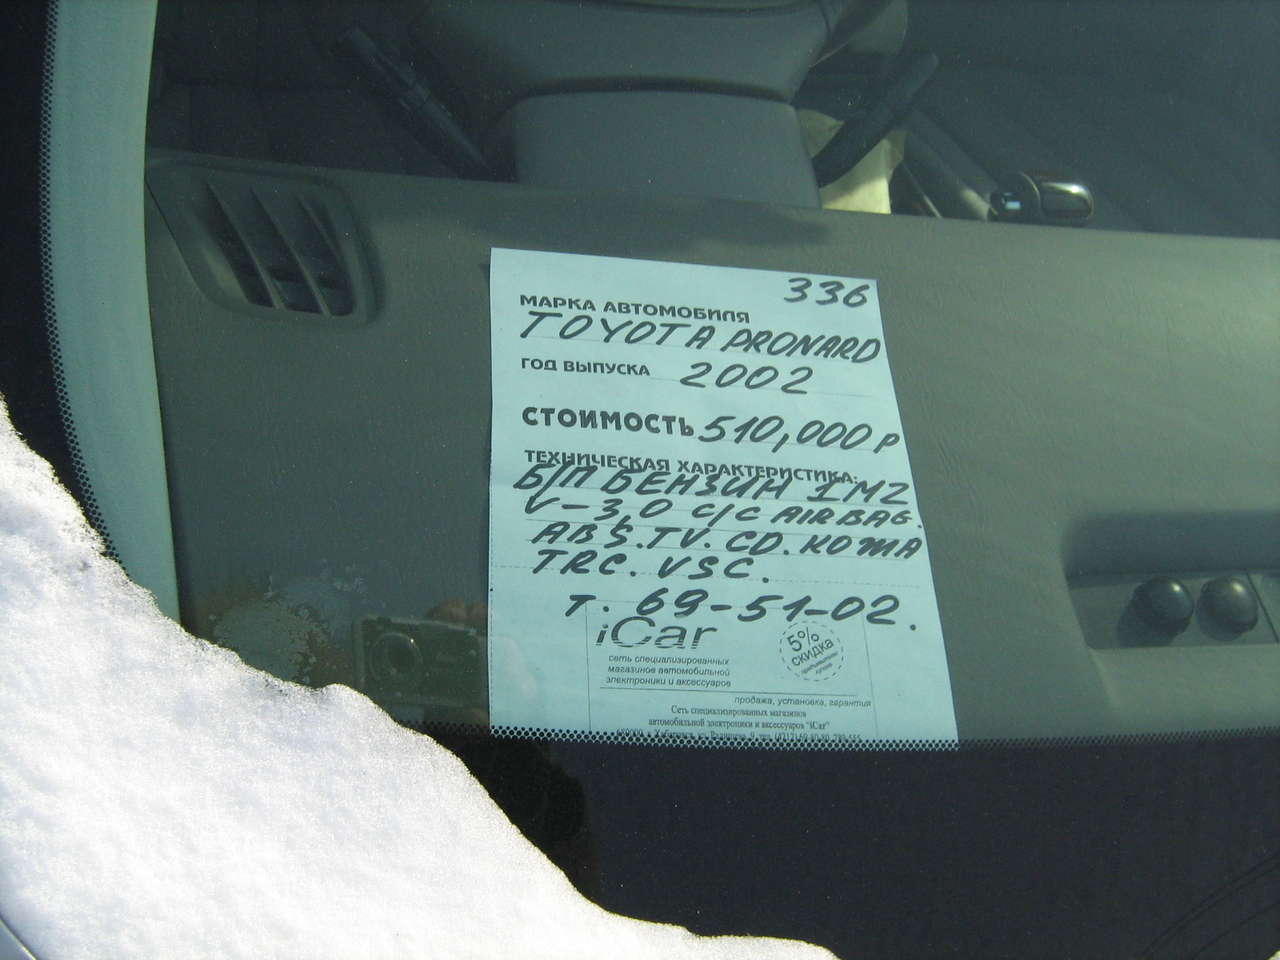 336
МАРКА АВТОМОБИЛЯ
TOYOTA PRONARD
ГОД ВЫПУСКА 2002
СТОИМОСТЬ 510,000 Р
ТЕХНИЧЕСКАЯ ХАРАКТЕРИСТИКА:
Б/П БЕНЗИН 1MZ
V-3,0 С/С AIRBAG.
ABS. TV. CD. КОЖА
TRC. VSC.
т. 69-51-02.
iCar
5% скидка
сеть специализированных
магазинов автомобильной
электроники и аксессуаров
продажа, установка, гарантия
Сеть специализированных магазинов
автомобильной электроники и аксессуаров "iCar"